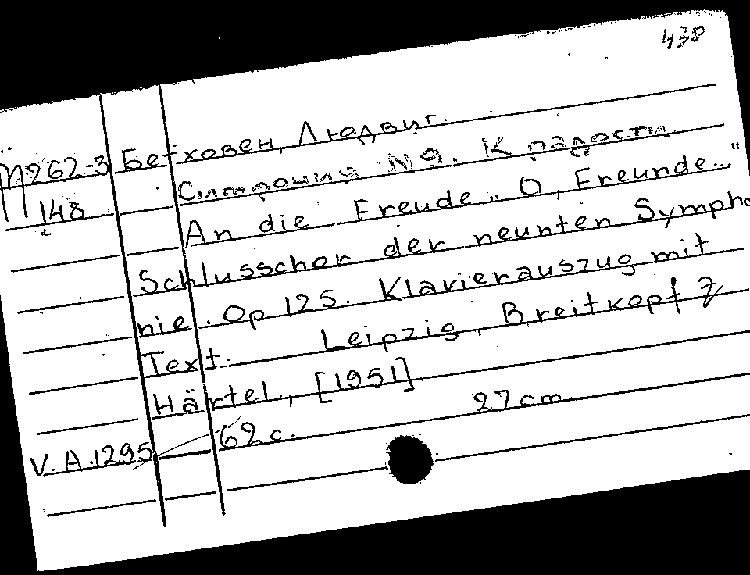 438
П962-3 Бетховен, Людвиг.
148 Симфония N 9. К радости.
An die Freude „O, Freunde.."
Schlusschor der neunten Sympho
nie. Op 125. Klavierauszug mit
Text. Leipzig, Breitkopf &
Härtel, [1951]
V. A. 1295 62 с. 27 cm